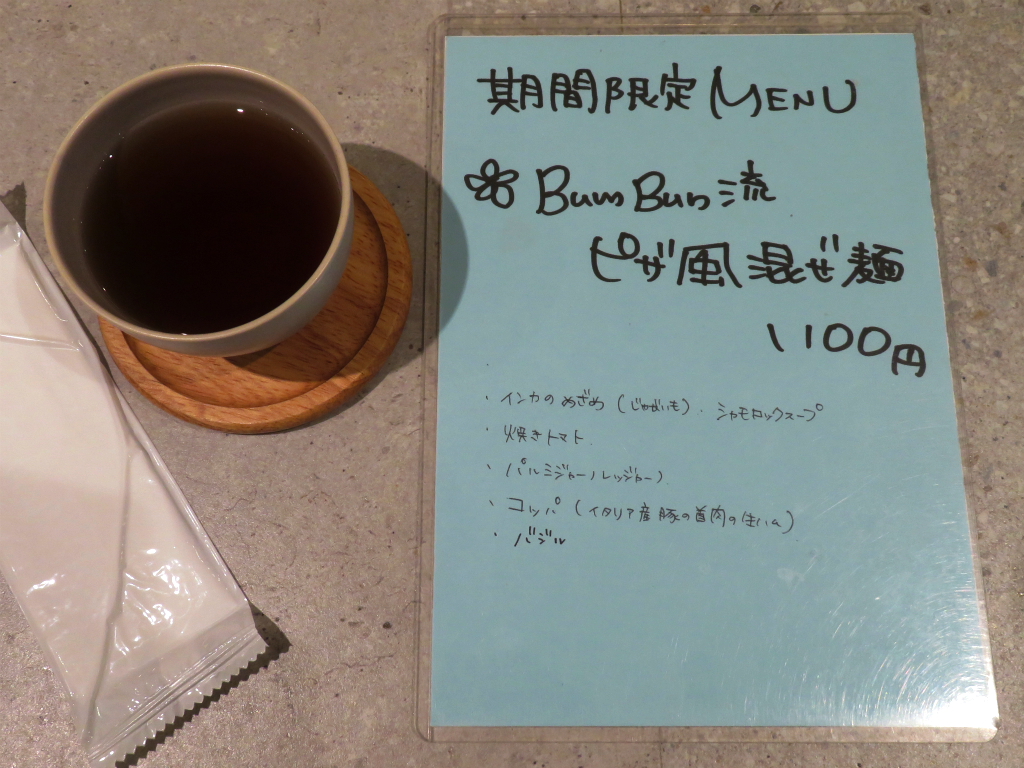 期間限定 MENU
Bun Bun 流
ピザ風混ぜ麺
1100円
・インカのめざめ(じゃがいも)・シャモロックスープ
・焼きトマト
・パルミジャーノレッジャーノ
・コッパ(イタリア産豚の首肉の生ハム)
・バジル